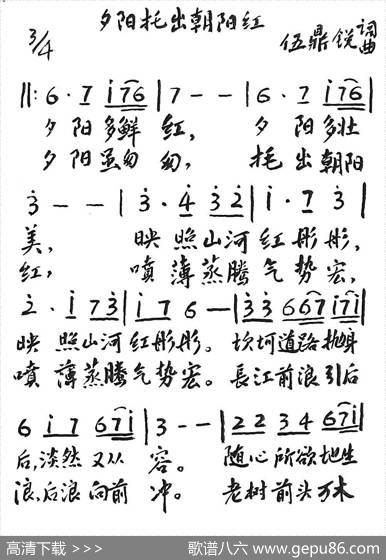 夕阳托出朝阳红
3/4
伍鼎锐 词曲
‖: 6 · 7 i76 | 7 - - | 6 · 7 i76 |
夕阳多鲜红, 夕阳多壮
夕阳虽匆匆, 托出朝阳
3 - - | 3 · 4 32 | i · 7 3 |
美, 映照山河红彤彤,
红, 喷薄蒸腾气势宏,
2 · i 73 | i76 - | 33 667 i7i |
映照山河红彤彤。 坎坷道路抛身
喷薄蒸腾气势宏。 長江前浪引后
6 i7 67i | 3 - - | 22 34 67i |
后,淡然又从容。 随心所欲地生
浪,后浪向前冲。 老树前头万木
高清下载 >>>
歌谱八六 www.gepu86.com